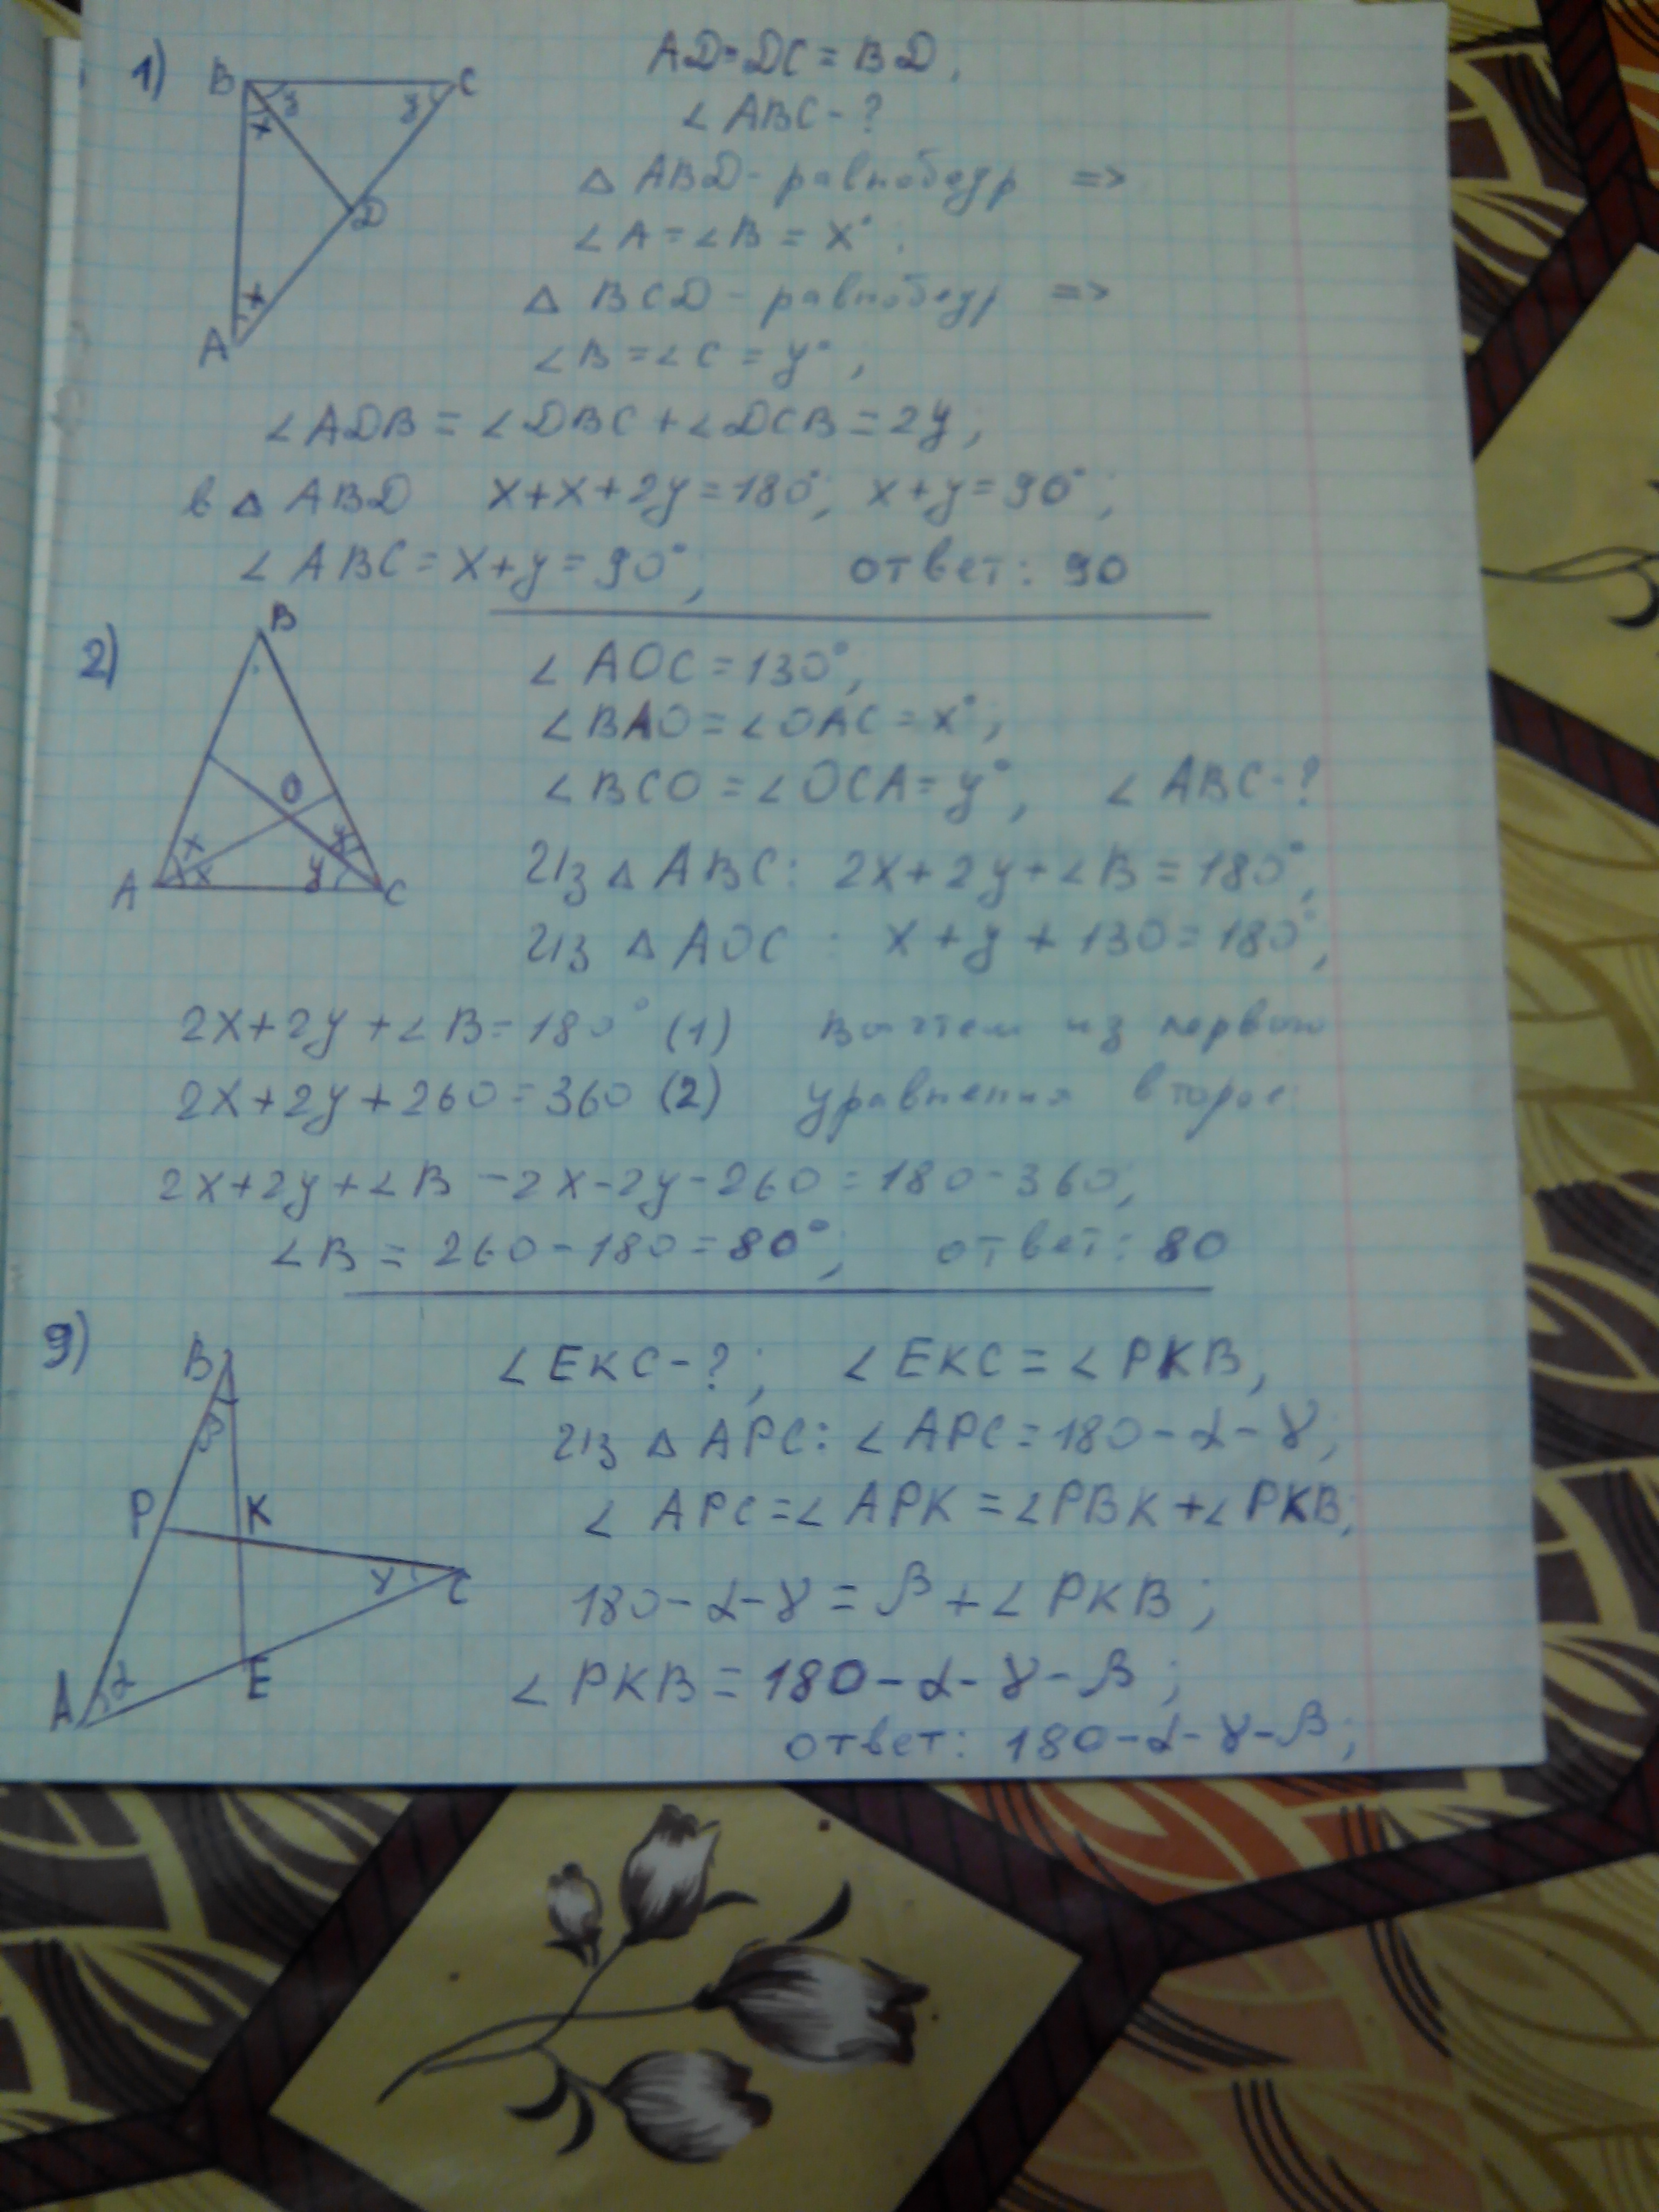 1) AD=DC=BD,
B C
y y
x
D
x
A
∠ABC-?
△ABD-равнобедр =>
∠A=∠B=x°;
△BCD-равнобедр =>
∠B=∠C=y°,
∠ADB=∠DBC+∠DCB=2y;
в △ABD x+x+2y=180°; x+y=90°;
∠ABC=x+y=90°; ответ: 90
2) B
O
x x y y
A C
∠AOC=130°,
∠BAO=∠OAC=x°;
∠BCO=∠OCA=y°, ∠ABC-?
Из △ABC: 2x+2y+∠B=180°,
Из △AOC: x+y+130=180°,
2x+2y+∠B=180° (1) Вычтем из первого
2x+2y+260=360 (2) уравнения второе
2x+2y+∠B-2x-2y-260=180-360,
∠B=260-180=80°; ответ: 80
9) B
β
P K
γ C
α
A E
∠EKC-?; ∠EKC=∠PKB,
Из △APC: ∠APC=180-α-γ;
∠APC=∠APK=∠PBK+∠PKB;
180-α-γ=β+∠PKB;
∠PKB=180-α-γ-β;
ответ: 180-α-γ-β;